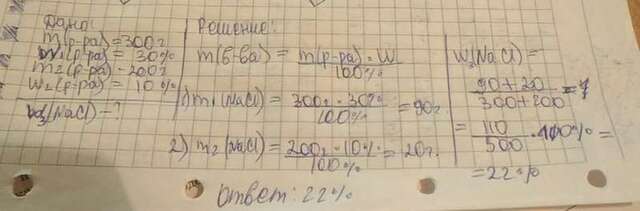 Дано:
m(р-ра)=300г
w₁(р-ра)=30%
m₂(р-ра)-200г
w₂(р-ра)=10%
w₃(NaCl)-?
Решение:
m(в-ва) = m(р-ра)·W
100%
1) m₁(NaCl) = 300г·30% = 90г.
100%
2) m₂(NaCl) = 200г·10% = 20г.
100%
W₃(NaCl) =
90+20 =
300+200
= 110 · 100% =
500
=22%
Ответ: 22%